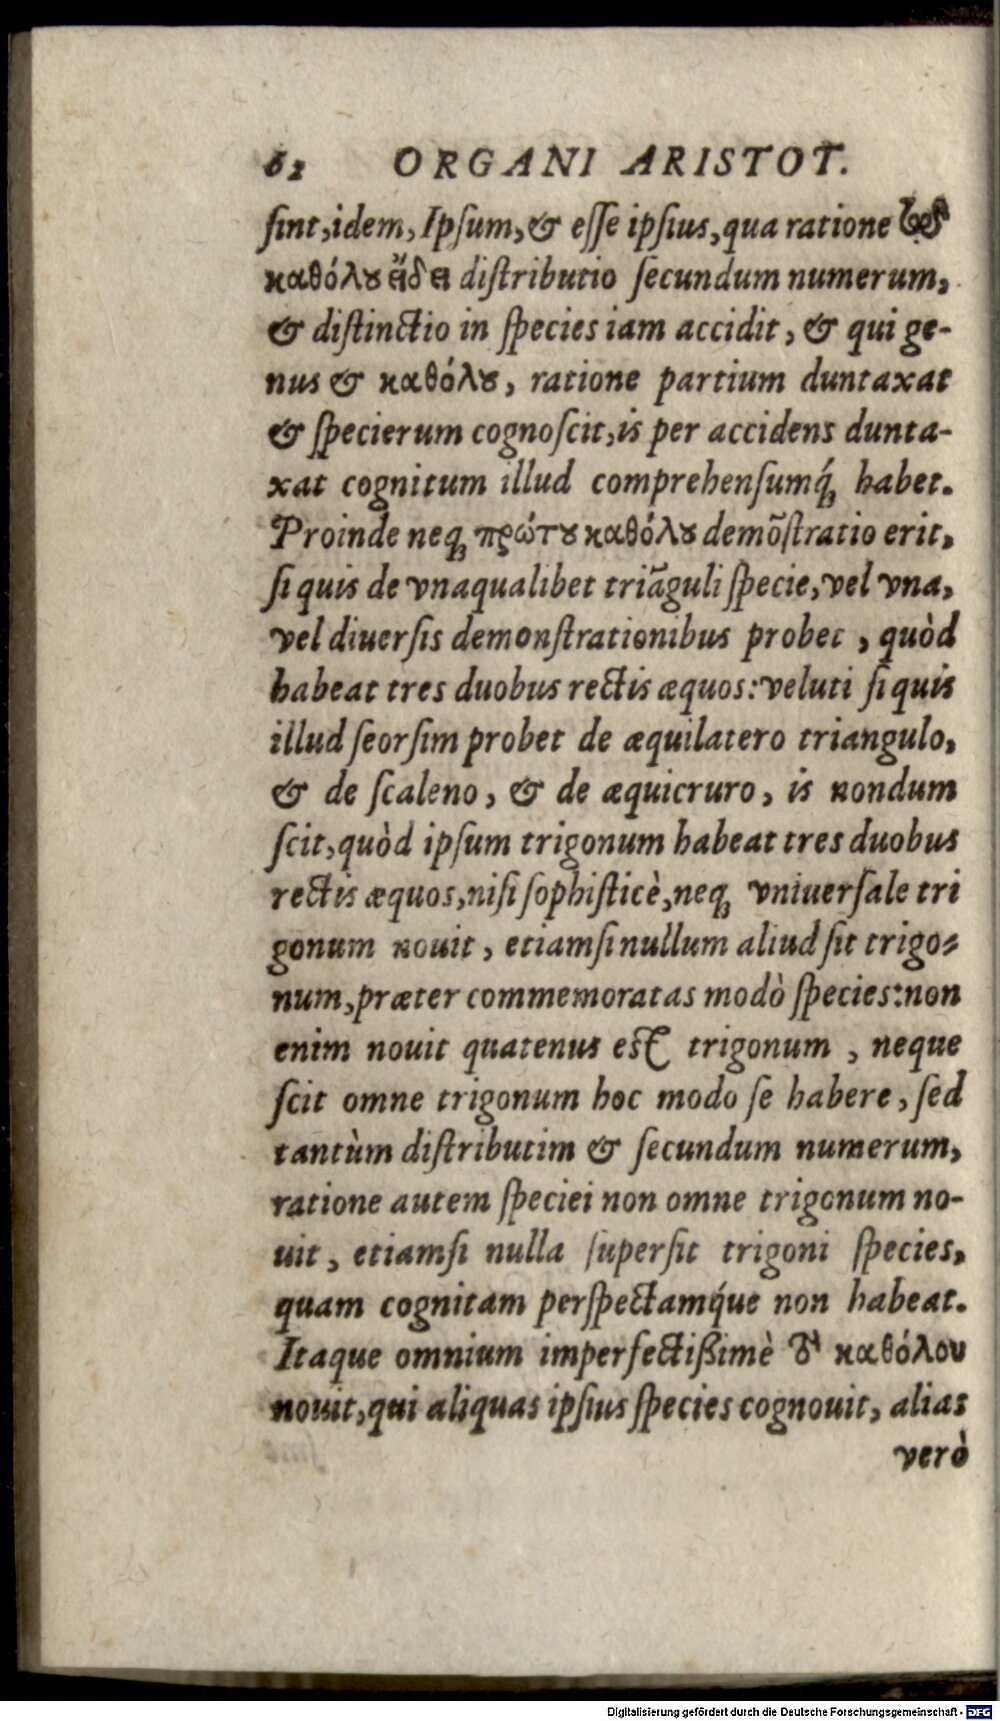 62 ORGANI ARISTOT.
sint, idem, Ipsum, & esse ipsius, qua ratione
καθόλȣ εἴδει distributio secundum numerum,
& distinctio in species iam accidit, & qui ge-
nus & καθόλȣ, ratione partium duntaxat
& specierum cognoscit, is per accidens dunta-
xat cognitum illud comprehensumq́ꝫ habet.
Proinde neqꝫ πρώτȣ καθόλȣ demōstratio erit,
si quis de vnaqualibet triāguli specie, vel vna,
vel diuersis demonstrationibus probet, quòd
habeat tres duobus rectis æquos: veluti si quis
illud seorsim probet de æquilatero triangulo,
& de scaleno, & de æquicruro, is nondum
scit, quòd ipsum trigonum habeat tres duobus
rectis æquos, nisi sophisticè, neqꝫ vniuersale tri
gonum nouit, etiamsi nullum aliud sit trigo-
num, præter commemoratas modò species: non
enim nouit quatenus est trigonum, neque
scit omne trigonum hoc modo se habere, sed
tantùm distributim & secundum numerum,
ratione autem speciei non omne trigonum no-
uit, etiamsi nulla supersit trigoni species,
quam cognitam perspectamq́ue non habeat.
Itaque omnium imperfectißimè καθόλου
nouit, qui aliquas ipsius species cognouit, alias
verò
Digitalisierung gefördert durch die Deutsche Forschungsgemeinschaft - DFG